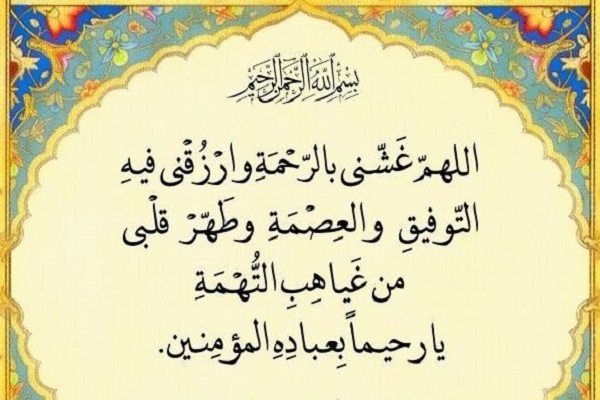 بِسْمِ اللَّهِ الرَّحْمَنِ الرَّحِيمِ
اللهمّ غَشّنی بالرّحْمَةِ وارْزُقْنی فیهِ
التّوفیقِ والعِصْمَةِ وطَهّرْ قلْبی
من غَیاهِبِ التُّهْمَةِ
یا رحیماً بِعبادِهِ المؤمِنین.